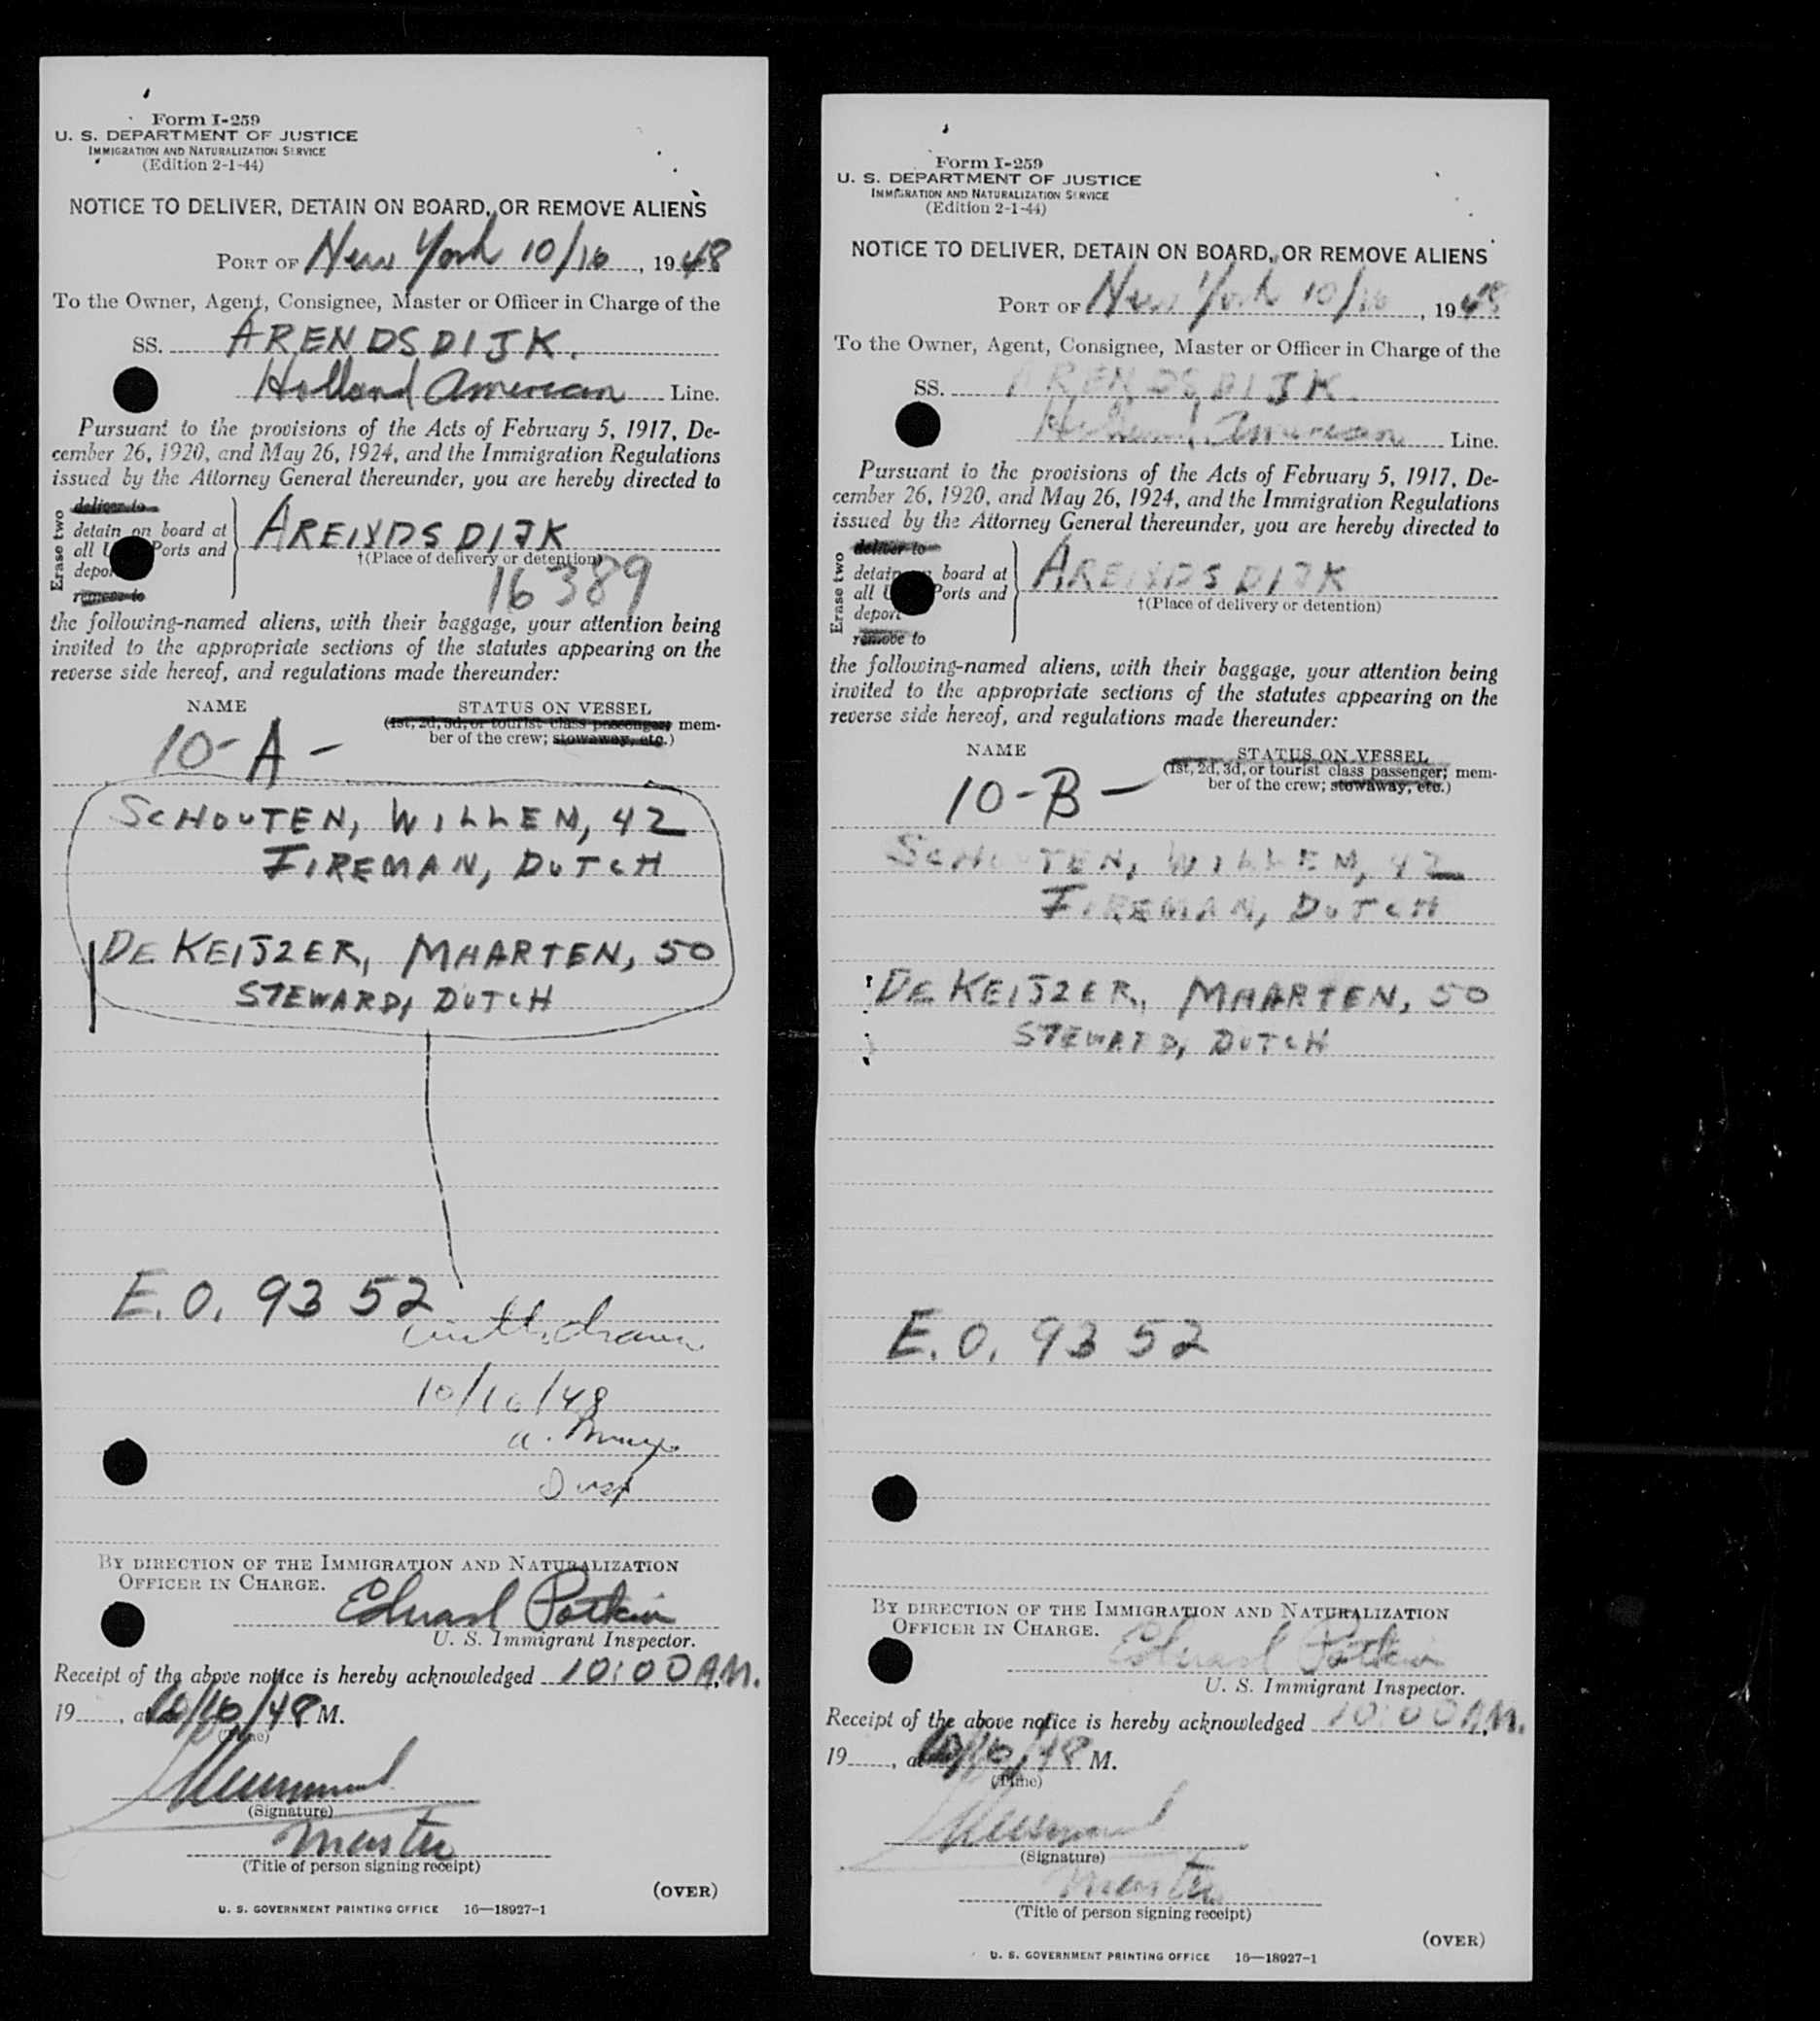 Form I-259
U. S. DEPARTMENT OF JUSTICE
IMMIGRATION AND NATURALIZATION SERVICE
(Edition 2-1-44)
NOTICE TO DELIVER, DETAIN ON BOARD, OR REMOVE ALIENS
PORT OF New York 10/16, 1948
To the Owner, Agent, Consignee, Master or Officer in Charge of the
SS. ARENDSDIJK.
Holland American Line.
Pursuant to the provisions of the Acts of February 5, 1917, De-
cember 26, 1920, and May 26, 1924, and the Immigration Regulations
issued by the Attorney General thereunder, you are hereby directed to
Erase two
deliver to
detain on board at
all U Ports and
depor
remove to
ARENDSDIJK
†(Place of delivery or detention)
16389
the following-named aliens, with their baggage, your attention being
invited to the appropriate sections of the statutes appearing on the
reverse side hereof, and regulations made thereunder:
NAME STATUS ON VESSEL
(1st, 2d, 3d, or tourist class passenger; mem-
ber of the crew; stowaway, etc.)
10-A-
SCHOUTEN, WILLEM, 42
FIREMAN, DUTCH
DE KEIJZER, MAARTEN, 50
STEWARD, DUTCH
E.O. 9352
withdrawn
10/16/48
BY DIRECTION OF THE IMMIGRATION AND NATURALIZATION
OFFICER IN CHARGE.
U. S. Immigrant Inspector.
Receipt of the above notice is hereby acknowledged 10:00 A.M.
19, at 10/16/48 M.
(Time)
(Signature)
Master
(Title of person signing receipt)
(OVER)
U. S. GOVERNMENT PRINTING OFFICE 16—18927-1
Form I-259
U. S. DEPARTMENT OF JUSTICE
IMMIGRATION AND NATURALIZATION SERVICE
(Edition 2-1-44)
NOTICE TO DELIVER, DETAIN ON BOARD, OR REMOVE ALIENS
PORT OF New York 10/16, 1948
To the Owner, Agent, Consignee, Master or Officer in Charge of the
SS. ARENDSDIJK.
Holland American Line.
Pursuant to the provisions of the Acts of February 5, 1917, De-
cember 26, 1920, and May 26, 1924, and the Immigration Regulations
issued by the Attorney General thereunder, you are hereby directed to
Erase two
deliver to
detain on board at
all U Ports and
deport
remove to
ARENDSDIJK
†(Place of delivery or detention)
the following-named aliens, with their baggage, your attention being
invited to the appropriate sections of the statutes appearing on the
reverse side hereof, and regulations made thereunder:
NAME STATUS ON VESSEL
(1st, 2d, 3d, or tourist class passenger; mem-
ber of the crew; stowaway, etc.)
10-B-
SCHOUTEN, WILLEM, 42
FIREMAN, DUTCH
DE KEIJZER, MAARTEN, 50
STEWARD, DUTCH
E.O. 9352
BY DIRECTION OF THE IMMIGRATION AND NATURALIZATION
OFFICER IN CHARGE.
U. S. Immigrant Inspector.
Receipt of the above notice is hereby acknowledged 10:00 A.M.
19, at 10/16/48 M.
(Time)
(Signature)
Master
(Title of person signing receipt)
(OVER)
U. S. GOVERNMENT PRINTING OFFICE 16—18927-1